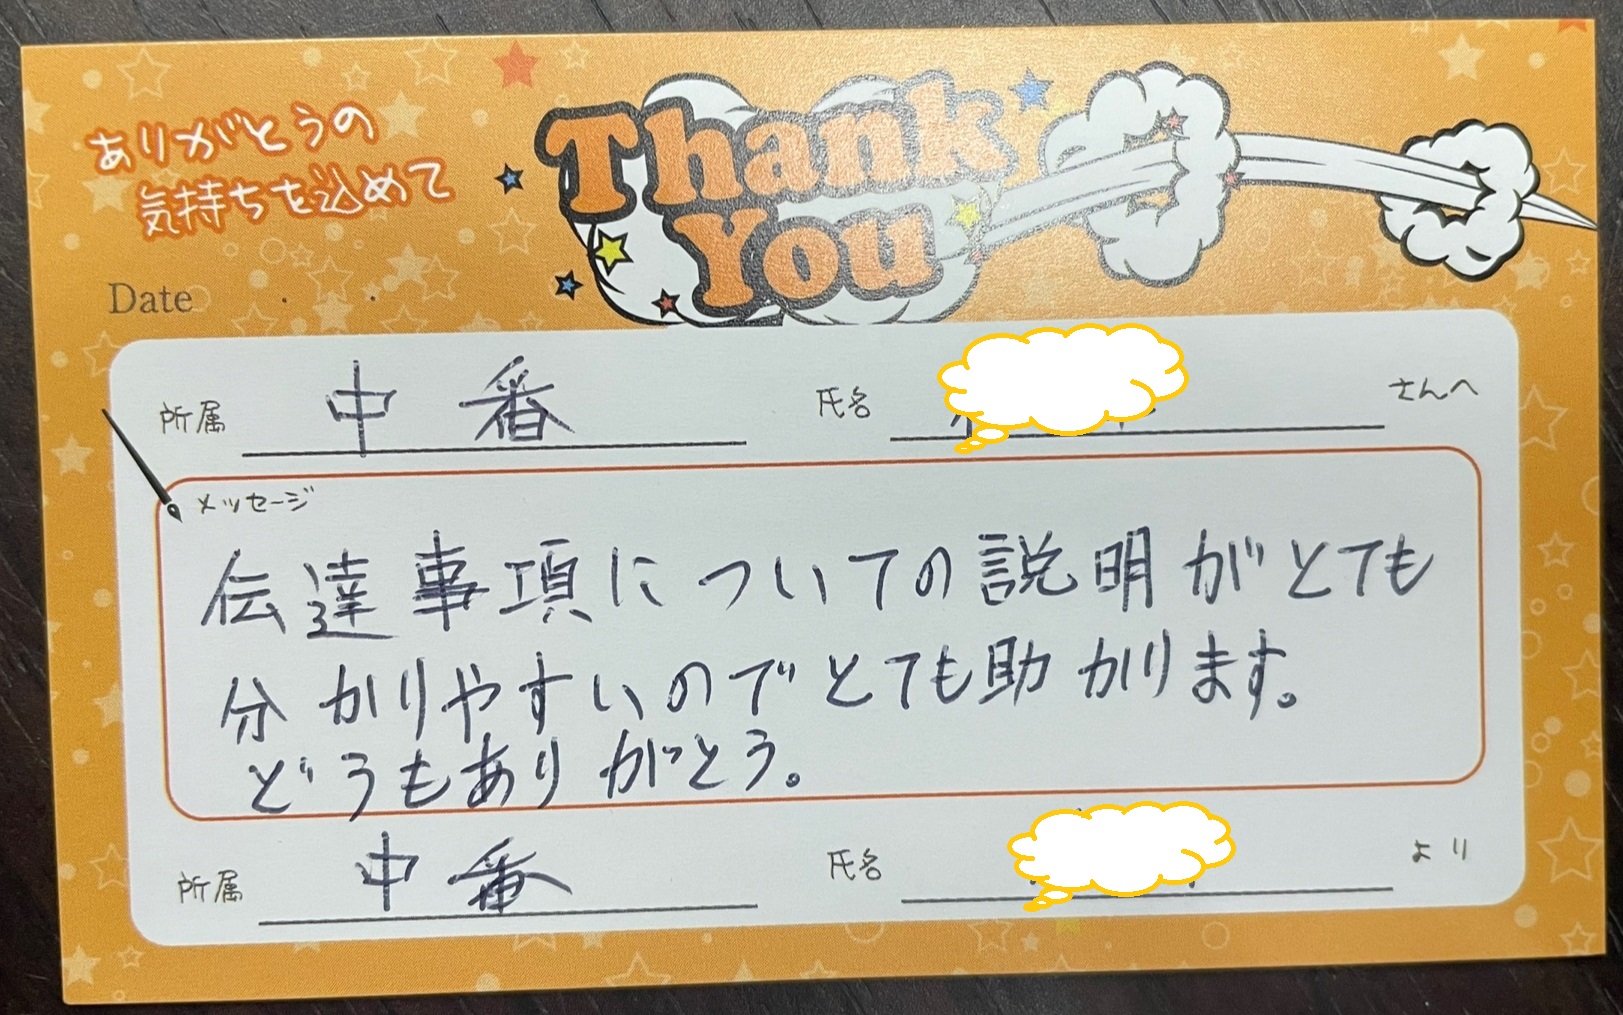 ありがとうの
気持ちを込めて
Thank
You
Date . .
所属 中番 氏名 さんへ
メッセージ
伝達事項についての説明がとても
分かりやすいのでとても助かります。
どうもありがとう。
所属 中番 氏名 より